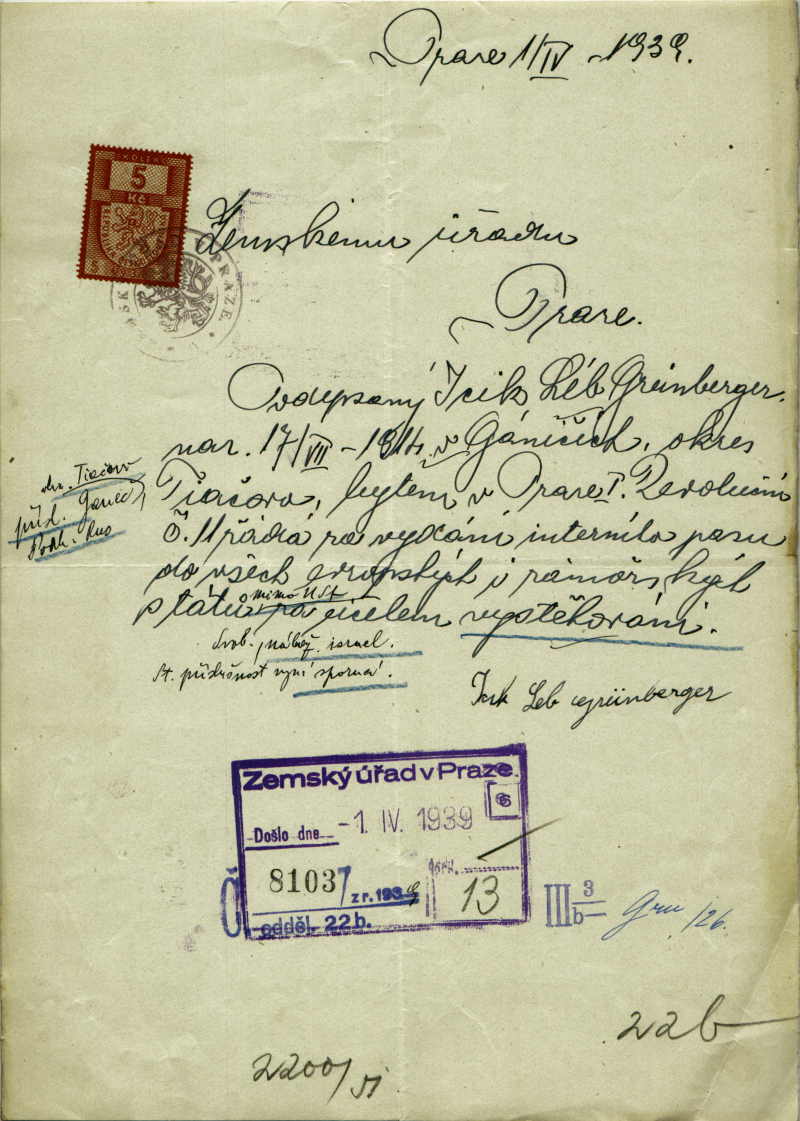 Praze 1/IV - 1939.
KOLEK
5
Kč
PRAZE
Zemskému úřadu
Praze.
Podepsaný Icik Léb Grünberger.
nar. 17/VII - 1914 v Gáničích, okres
Tiačovo, bytem v Praze I. Revoluční
č. 11 žádá za vydání interního pasu
do všech evropských i zámořských
států za účelem vystěhování.
mimo
příd. Ganec
Podk. Rus
Svob. nábož. israel.
St. příslušnost nyní sporná.
Icik Leb Grünberger
Zemský úřad v Praze.
Došlo dne -1. IV. 1939
81037 z r. 1939
13
odděl. 22b.
III 3/b-
/26.
22b
2200/